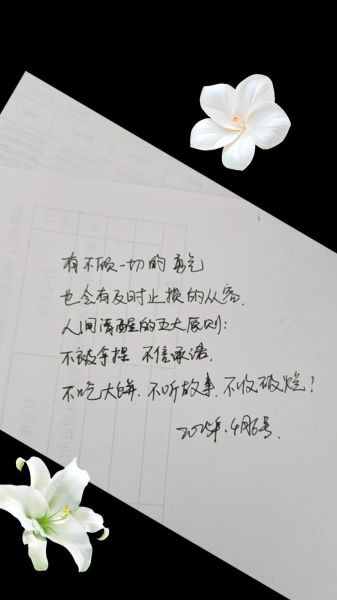 有不顾一切的勇气
也会有及时止损的从容.
人间清醒的五大原则:
不被拿捏 不信承诺,
不吃大饼.不听故事.不收破烂!
2025年.4月6号.